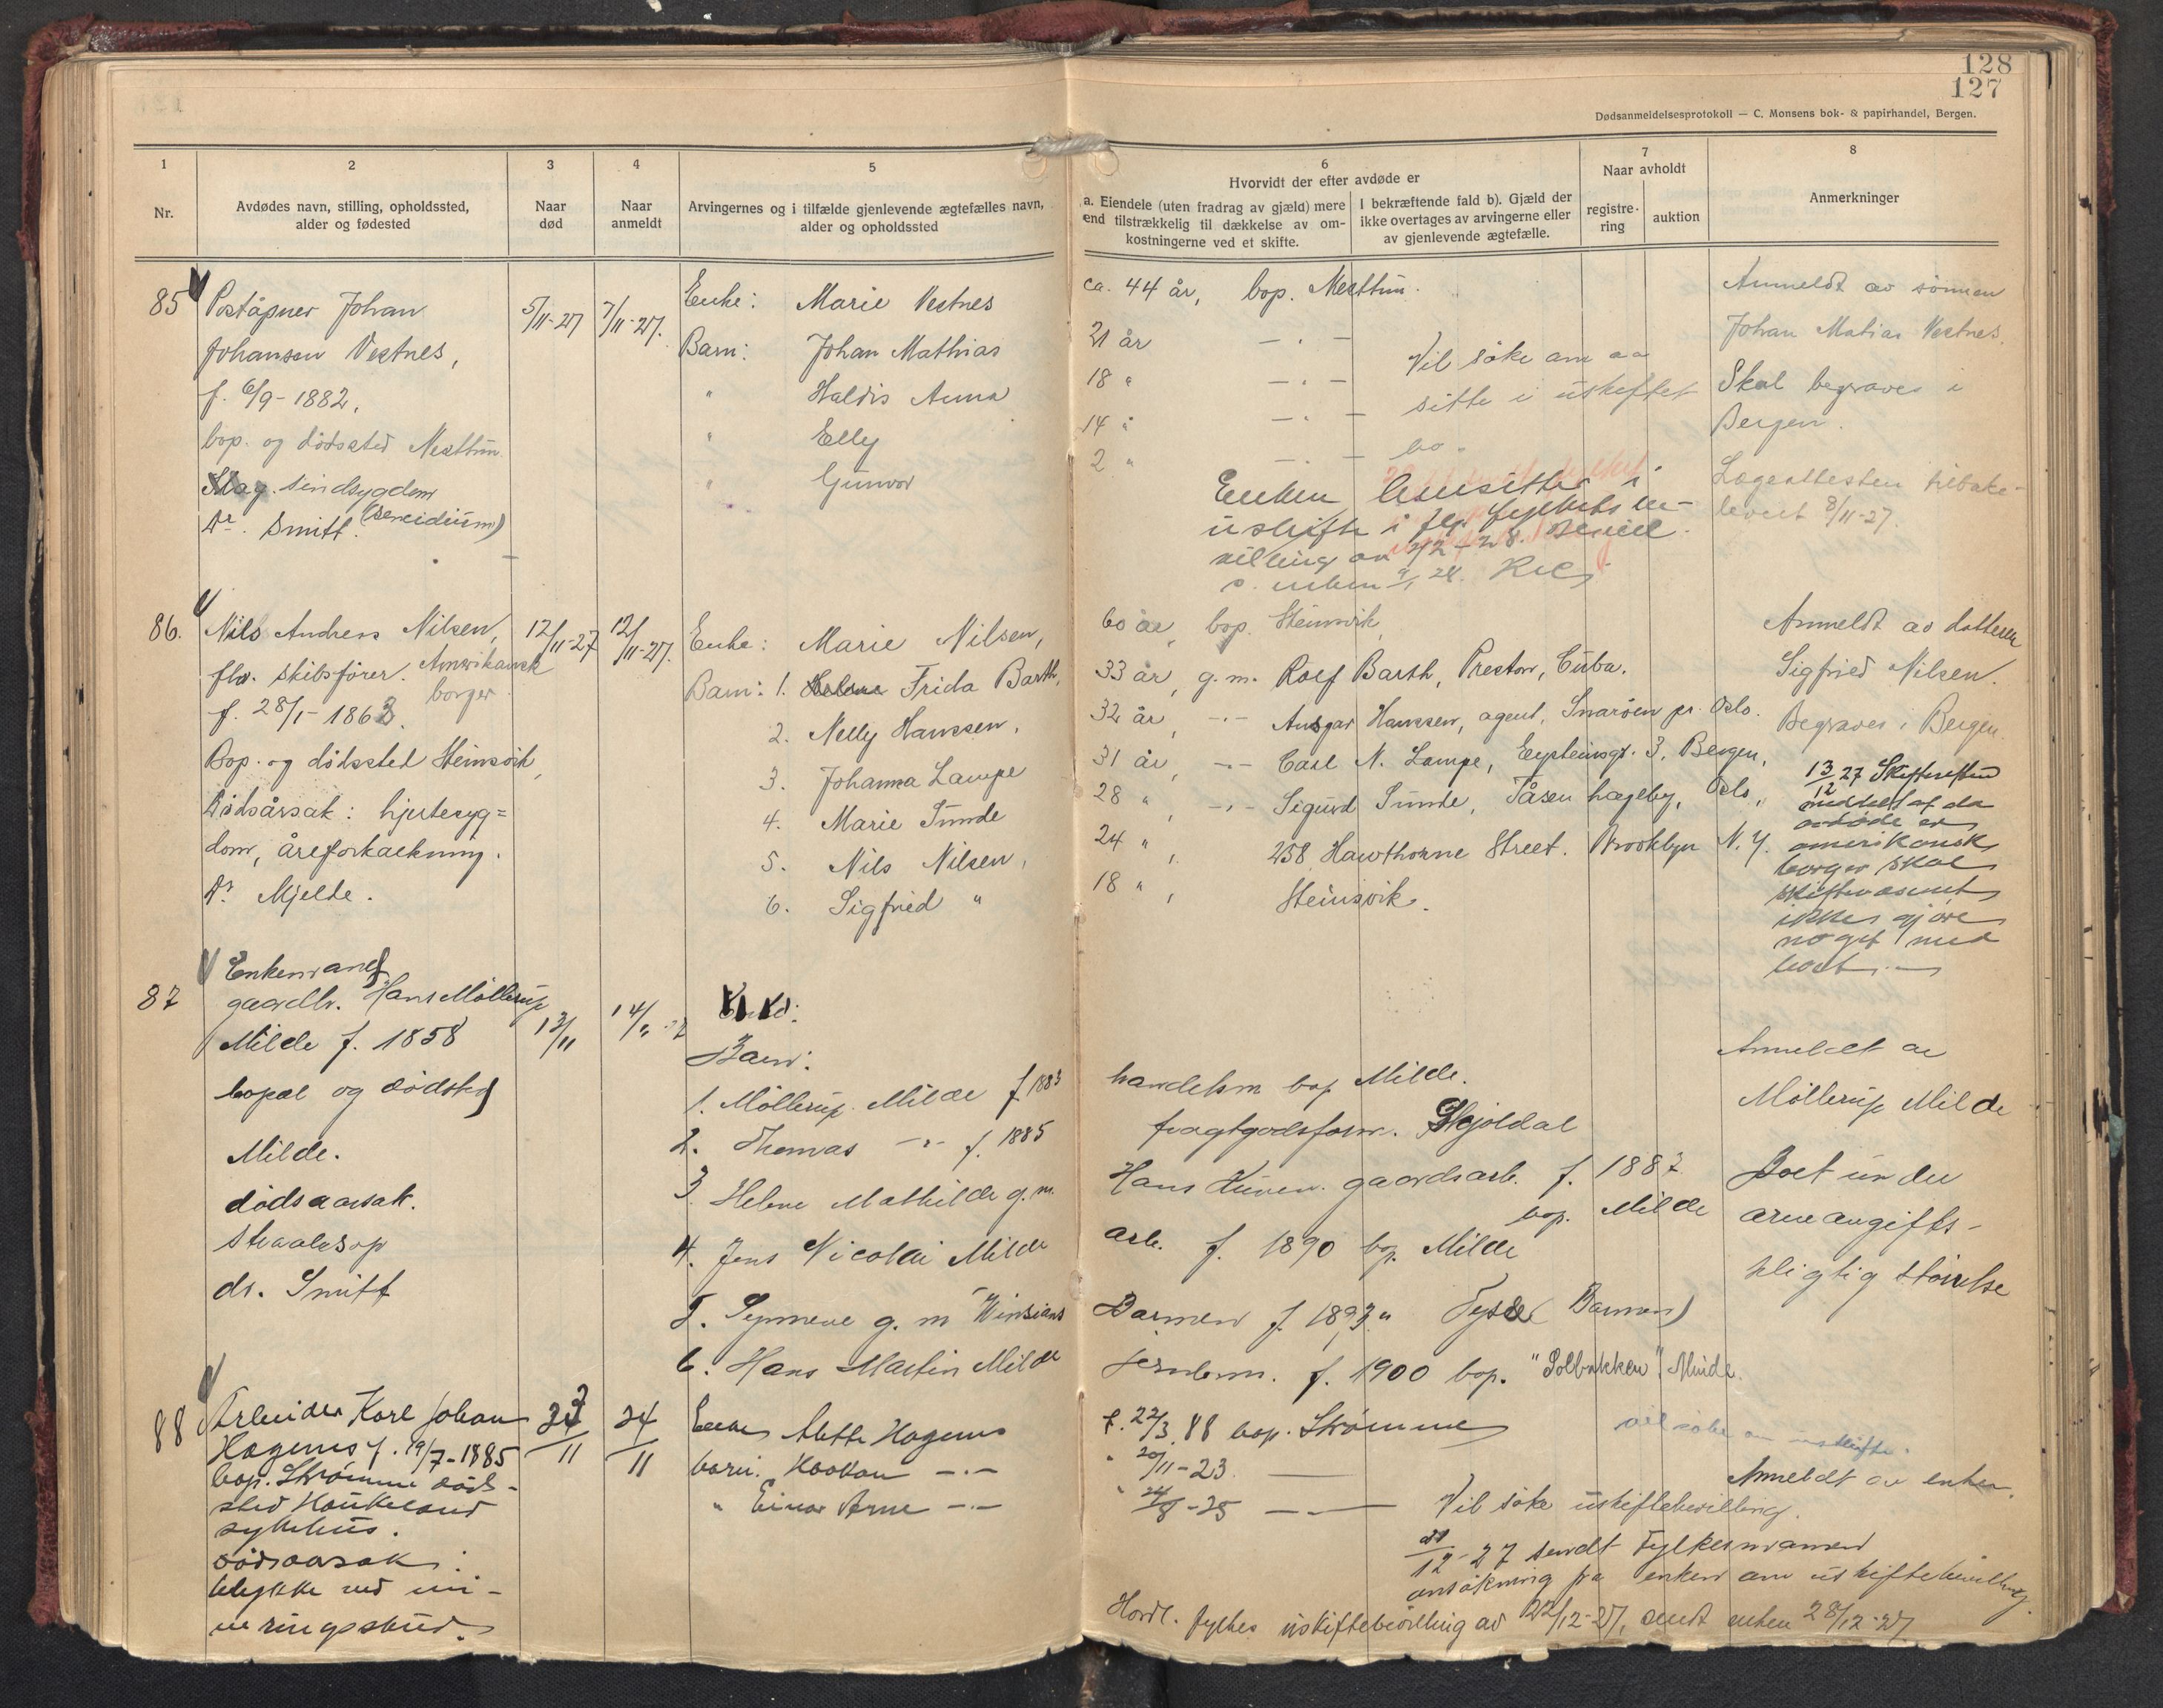 128
127
Dødsanmeldelsesprotokoll — C. Monsens bok- & papirhandel, Bergen.
1
Nr.
2
Avdødes navn, stilling, opholdssted,
alder og fødested
3
Naar
død
4
Naar
anmeldt
5
Arvingernes og i tilfælde gjenlevende ægtefælles navn,
alder og opholdssted
6
Hvorvidt der efter avdøde er
a. Eiendele (uten fradrag av gjæld) mere
end tilstrækkelig til dækkelse av om-
kostningerne ved et skifte.
I bekræftende fald b). Gjæld der
ikke overtages av arvingerne eller
av gjenlevende ægtefælle.
7
Naar avholdt
registre-
ring
auktion
8
Anmerkninger
85
Poståpner Johan
Johansen Vestnes,
f. 6/9-1882,
bop. og dødssted Nesttun.
sindsygdom
Dr. Smitt.
5/11-27
7/11-27.
Enke: Marie Vestnes
Barn: Johan Mathias
" Haldis Anna
" Elly
" Gunvor
ca. 44 år, bop. Nesttun.
21 år — " —
18 " — " —
14 " — " —
2 " — " —
Vil søke om aa
sitte i uskiftet
bo.
Enken hensitter i
uskifte i flg. fylkets be-
villing av 2/2-28.
Anmeldt av sønnen
Johan Matias Vestnes.
Skal begraves i
Bergen.
Lægeattesten tilbake-
levert 8/11-27.
86.
Nils Andreas Nilsen,
fhv. skibsfører. Amerikansk
borger.
f. 28/1-1863.
Bop. og dødssted Steinsvik,
Dødsårsak: hjertesyg=
dom, åreforkalkning.
Dr. Mjelde.
12/11-27
12/11-27.
Enke: Marie Nilsen,
Barn: 1. Frida Barth,
2. Nelly Hanssen,
3. Johanna Lampe
4. Marie Sunde
5. Nils Nilsen,
6. Sigfried "
60 år, bop. Steinsvik,
33 år, g. m. Rolf Barth, Preston, Cuba.
32 år, -"- Ansgar Hanssen, agent, Snarøen pr. Oslo.
31 år, -"- Carl N. Lampe, Eysteinsgt. 3, Bergen,
28 ", -"- Sigurd Sunde, Tåsen hageby, Oslo,
24 ", 258 Hawthorne Street. Brooklyn N. Y.
18 ", Steinsvik.
Anmeldt av datteren
Sigfried Nilsen.
Begraves i Bergen.
13/12 27 Skifteretten
meddelt at da
avdøde er
amerikansk
borger skal
skiftevæsenet
ikke gjøre
noget med
boet. —
87
Enkemand
gaardbr. Hans Møllerup
Milde f. 1858
bopæl og dødsted
Milde.
dødsaarsak.
Straalesop
dr. Smitt
13/11
14/11 27
Barn:
1. Møllerup Milde f. 1883
2. Thomas -"- f. 1885
3. Helene Mathilde g. m.
4. Jens Nicolai Milde
5. Synneve g. m
6. Hans Martin Milde
handelsm bop Milde.
fragtgodsform. Skjoldal
Hans gaardsarb. f. 1887
bop. Milde
arb. f. 1890 bop. Milde
Barmen f. 1893 " Barmen)
f. 1900 bop. "Solbakken", Minde.
Anmeldt av
Møllerup Milde
Boet under
arveavgifts-
pligtig størrelse
88
Arbeider Karl Johan
Hagenes f. 19/7-1885
bop. Strømme død-
sted Haukeland
sykehus.
dødsaarsak:
ulykke ved mi-
neringsskud.
23/11
24/11
Enke Mette Hagenes
barn. Haakon -"-
" Einar Arne -"-
f. 22/3. 88 bop. Strømme
" 20/11-23. ———
" 24/8-25 — " —
vil søke om uskifte.
Anmeldt av enken.
Vil søke uskiftebevilling.
12-27 sendt Fylkesmanen
ansøkning fra enken om uskiftebevilling.
Hordl. fylkes uskiftebevilling av 22/12-27, sendt enken 28/12-27